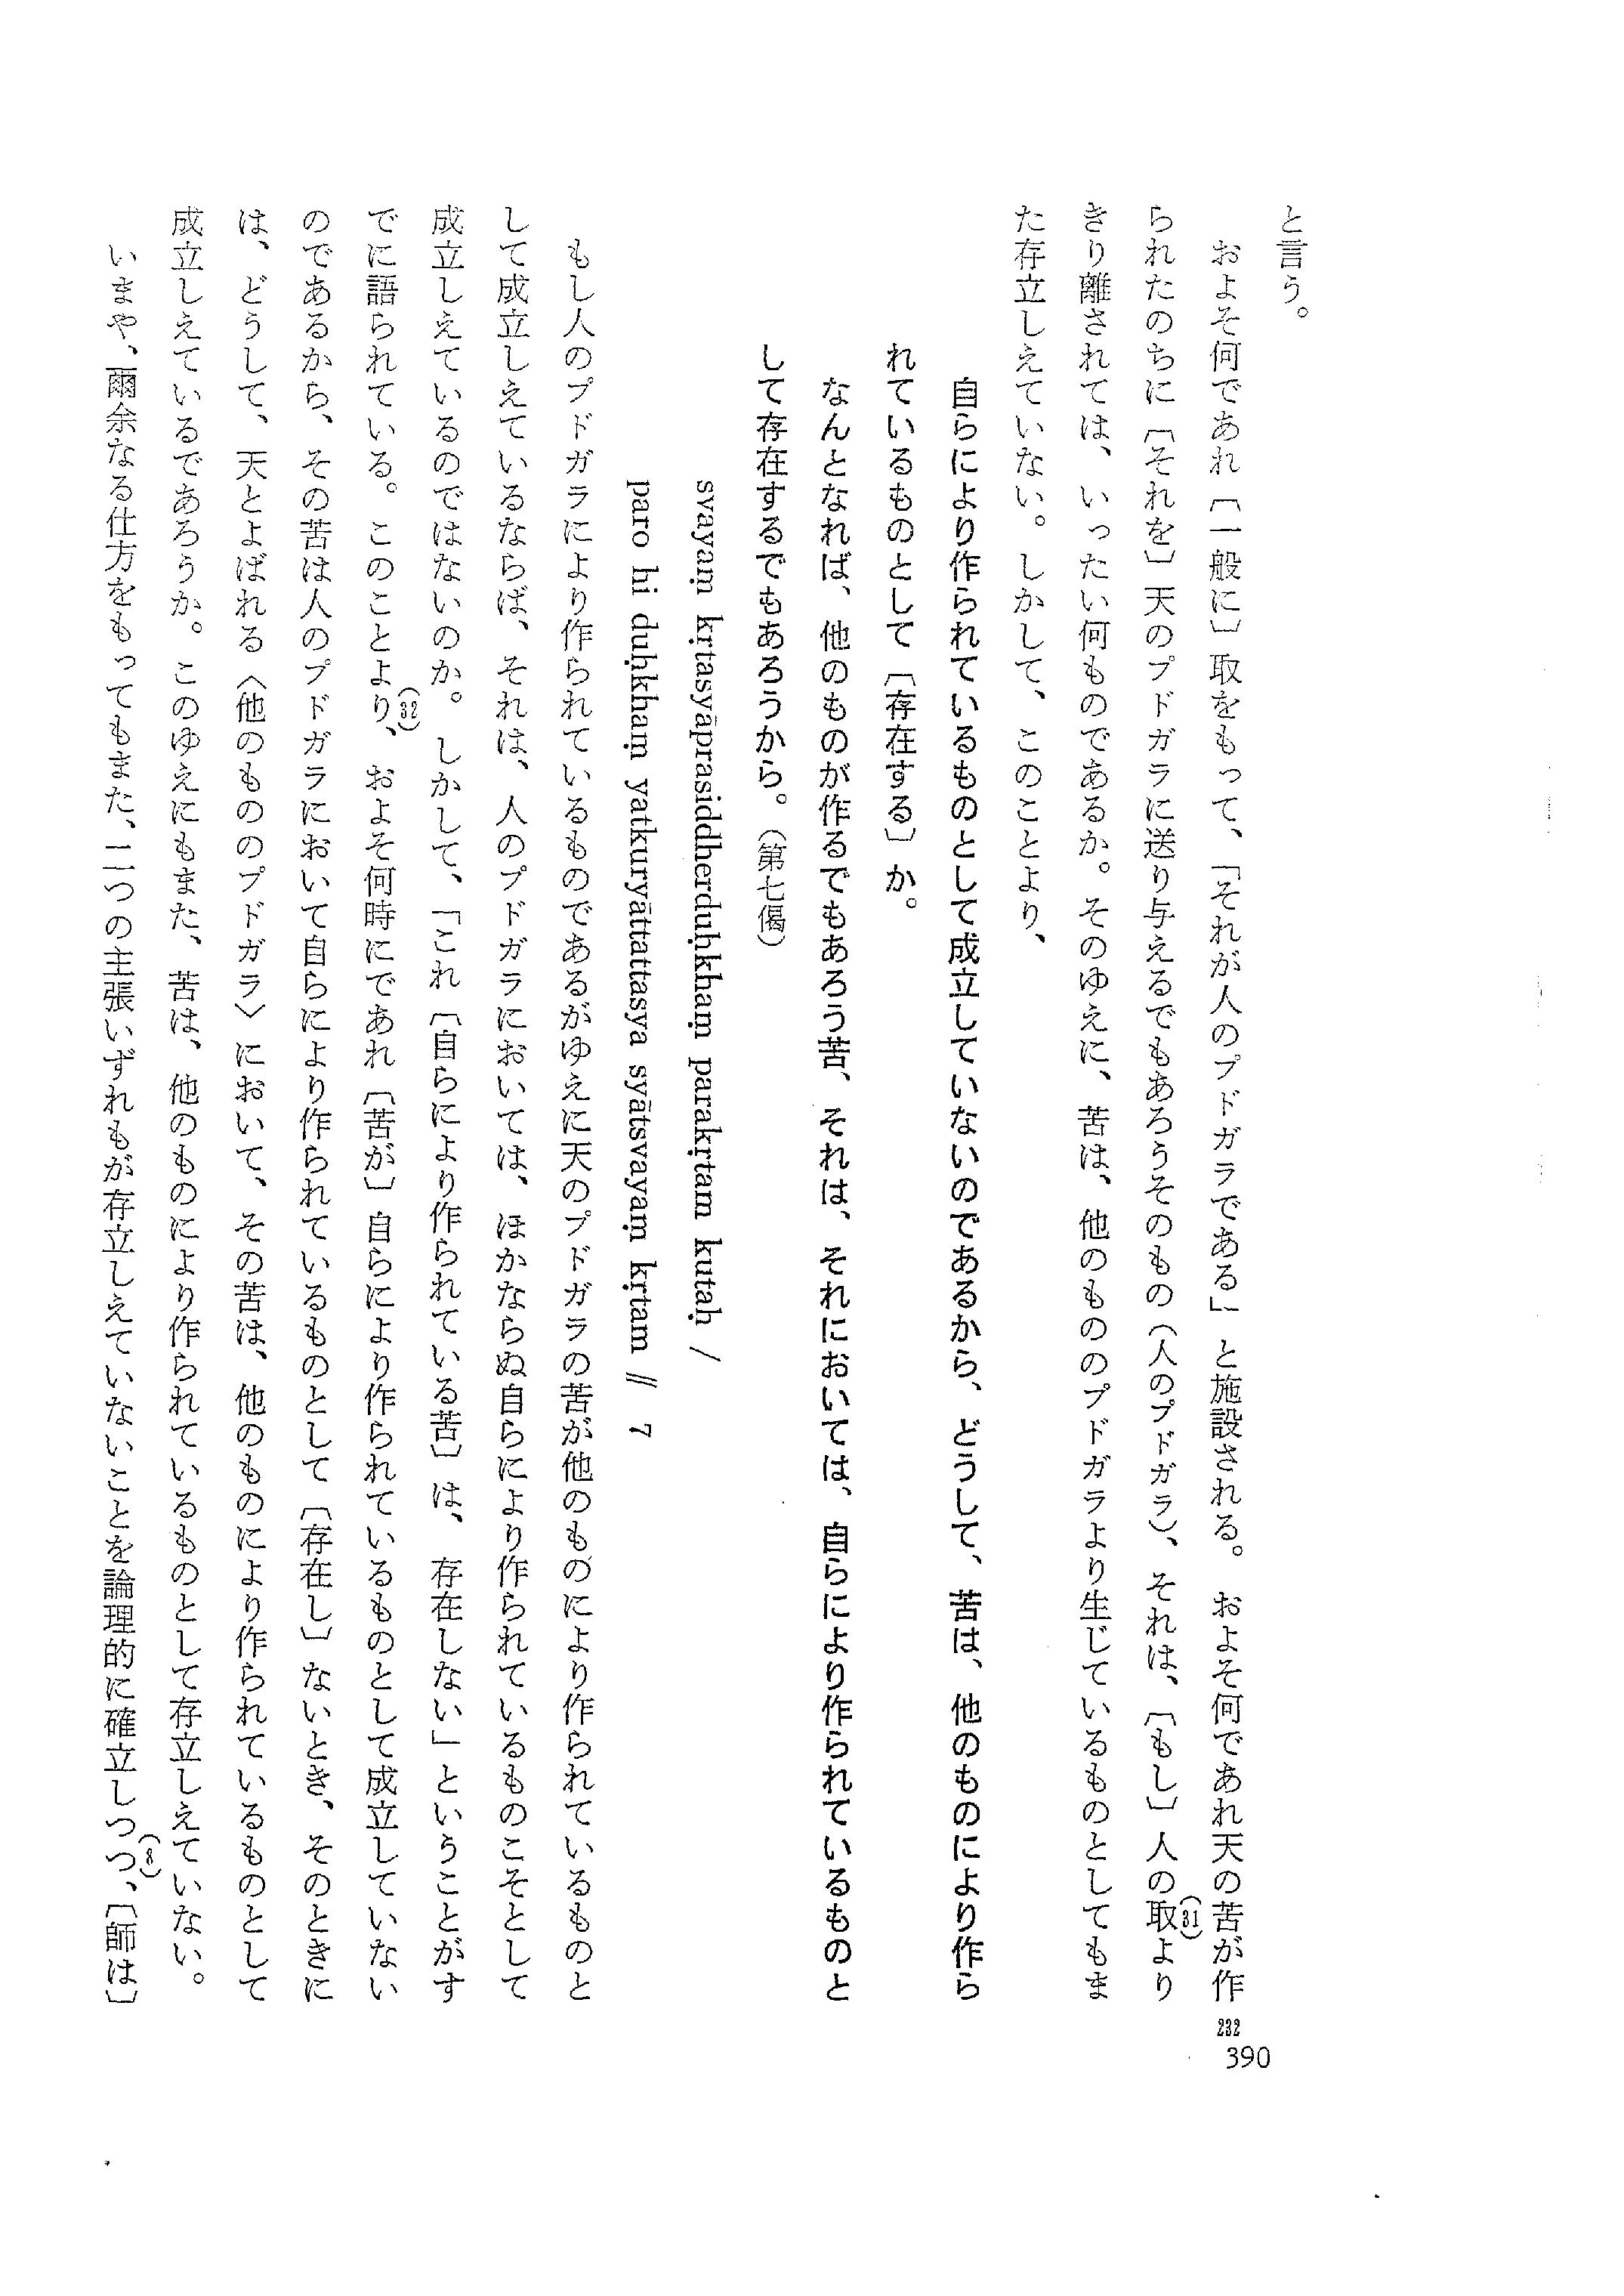 と言う。
およそ何であれ〔一般に〕取をもって、「それが人のプドガラである」と施設される。およそ何であれ天の苦が作
られたのちに〔それを〕天のプドガラに送り与えるでもあろうそのもの（人のプドガラ）、それは、〔もし〕人の取(31)より
きり離されては、いったい何ものであるか。そのゆえに、苦は、他のもののプドガラより生じているものとしてもま
た存立しえていない。しかして、このことより、
自らにより作られているものとして成立していないのであるから、どうして、苦は、他のものにより作ら
れているものとして〔存在する〕か。
なんとなれば、他のものが作るでもあろう苦、それは、それにおいては、自らにより作られているものと
して存在するでもあろうから。（第七偈）
svayaṃ kṛtasyāprasiddherduḥkhaṃ parakṛtam kutaḥ /
paro hi duḥkhaṃ yatkuryāttattasya syātsvayaṃ kṛtam // 7
もし人のプドガラにより作られているものであるがゆえに天のプドガラの苦が他のものにより作られているものと
して成立しえているならば、それは、人のプドガラにおいては、ほかならぬ自らにより作られているものこそとして
成立しえているのではないのか。しかして、「これ〔自らにより作られている苦〕は、存在しない」ということがす
でに語られている。このことより(32)、およそ何時にであれ〔苦が〕自らにより作られているものとして成立していない
のであるから、その苦は人のプドガラにおいて自らにより作られているものとして〔存在し〕ないとき、そのときに
は、どうして、天とよばれる〈他のもののプドガラ〉において、その苦は、他のものにより作られているものとして
成立しえているであろうか。このゆえにもまた、苦は、他のものにより作られているものとして存立しえていない。
いまや、爾余なる仕方をもってもまた、二つの主張いずれもが存立しえていないことを論理的に確立しつつ(8)、〔師は〕
232
390